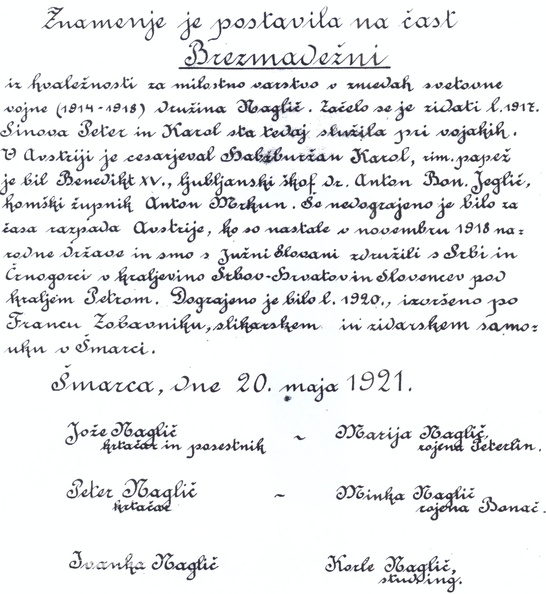 Znamenje je postavila na čast
Brezmadežni
iz hvaležnosti za milostno varstvo v zmedah svetovne
vojne (1914-1918) družina Naglič. Začelo se je zidati l. 1917.
Sinova Peter in Karol sta tedaj služila pri vojakih.
V Avstriji je cesarjeval Habzburžan Karol, rim. papež
je bil Benedikt XV., ljubljanski škof dr. Anton Bon. Jeglič,
homški župnik Anton Mrkun. Še nedograjeno je bilo za
časa razpada Avstrije, ko so nastale v novembru 1918 na=
rodne države in smo s Južni Slovani združili s Srbi in
Črnogorci v kraljevino Srbov-Hrvatov in Slovencev pod
kraljem Petrom. Dograjeno je bilo l. 1920., izvršeno po
Francu Zobavniku, slikarskem in zidarskem samo=
uku v Šmarci.
Šmarca, dne 20. maja 1921.
Jože Naglič ~ Marija Naglič,
krtačar in posestnik rojena Peterlin.
Peter Naglič ~ Minka Naglič
krtačar rojena Bonač.
Ivanka Naglič Korle Naglič,
stud. ing.